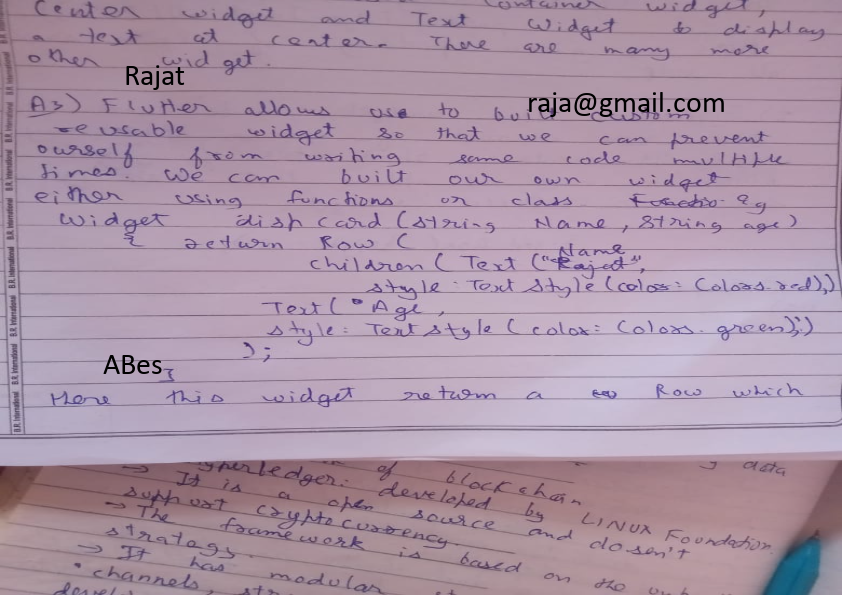 Container widget,
Center widget and Text Widget to display
a text at center. There are many more
other widget.
Rajat
raja@gmail.com
A3) Flutter allows use to built custom
reusable widget so that we can prevent
ourself from writing same code multiple
times. We can built our own widget
either using functions or class Functio Eg
Widget dish card (string Name, String age)
{ return Row (
Name
children ( Text ("Rajat",
style: Text Style (color: Colors.red),)
Text ( Age,
style: Text style ( color: Colors. green);)
);
ABes
}
Here this widget return a Row which
data
of blockchain
hyperledger. developed by LINUX Foundation.
→ It is a open source and dosen't
support cryptocurrency.
→ The framework is based on the
stratagy.
→ It has modular
• channels,
B.R. International B.R. International B.R. International B.R. International